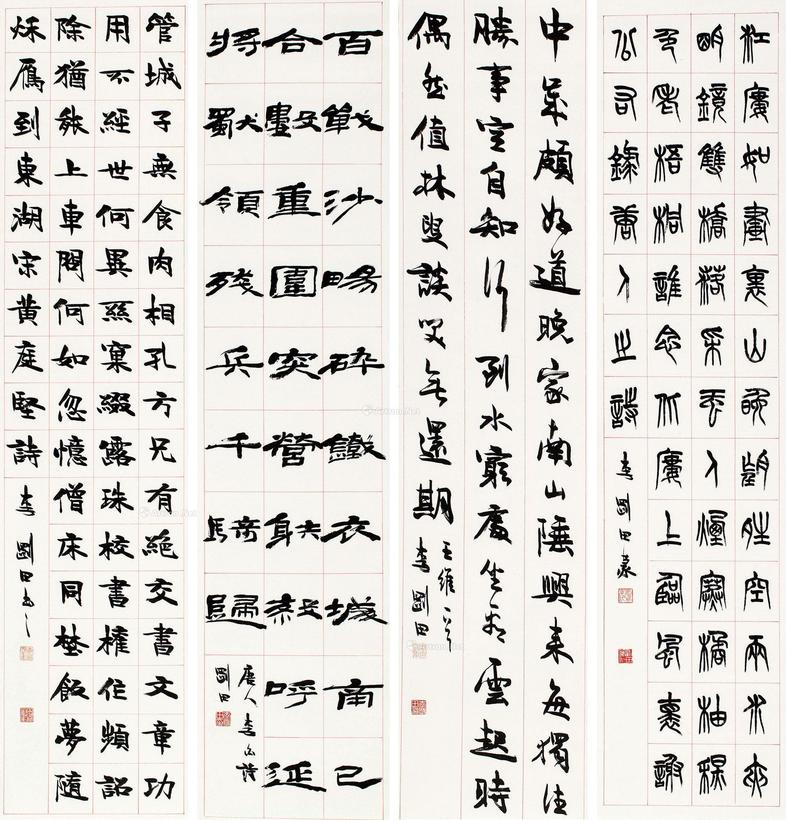 江廔如畫裏山晚望晴空兩水夾
明鏡雙橋落采虹人煙寒橘柚秋
色老梧桐誰念北廔上臨風褱謝
公右錄唐人之詩
李剛田篆
中歲頗好道晚家南山陲興來每獨往
勝事空自知行到水窮處坐看雲起時
偶然值林叟談笑無還期
王維
李剛田
百戰沙場碎鐵衣城南已
合數重圍突營射殺呼延
將獨領殘兵千騎歸
唐人李白詩
剛田
管城子無食肉相孔方兄有絕交書文章功
用不經世何異絲窠綴露珠校書著作頻詔
除猶能上車問何如忽憶僧床同野飯夢隨
秋雁到東湖宋黃庭堅詩
李剛田書之